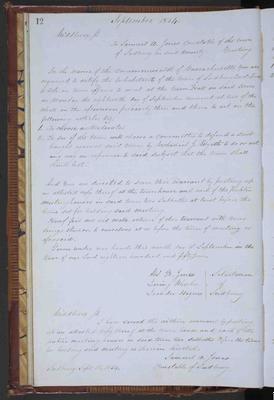 12
September 1854.
Middlesex ss.
To Samuel A. Jones Constable of the town
of Sudbury in said County. Greeting
In the name of the Commonwealth of Massachusetts you are
required to notify the Inhabitants of the town of Sudbury
to vote in town affairs to meet at the Town Hall in said
on Monday the eighteenth day of September at two of the
clock in the afternoon precisely then and there to act on the
following articles viz.
1. To choose a Moderator
2. To see if the town will choose a committee to defend a suit
brought against said town by or act
any way in reference to said subject that the town shall
think best.
And you are directed to serve this warrant by posting up
an attested copy thereof at the town house and each of the Public
meeting houses in said town two Sabbaths at least before the
time set for holding said meeting.
Hereof fail not and make return of this warrant with your
doings thereon to ourselves at or before the time of meeting as
aforesaid.
Given under our hands this day of September in the
year of our Lord eighteen hundred and fifty four.
Selectmen
of
Sudbury
Middlesex ss.
I have served the within warrant by posting
at an attested copy thereof at the town house and each of the
public meeting houses in said town two Sabbaths before the time
for holding said meeting as therein directed.
Samuel A. Jones
Sudbury Sept. 1854. Constable of Sudbury